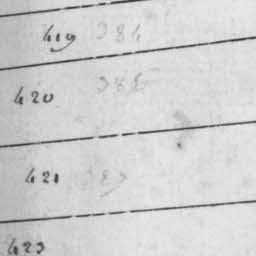 419 384
420 385
421 387
423